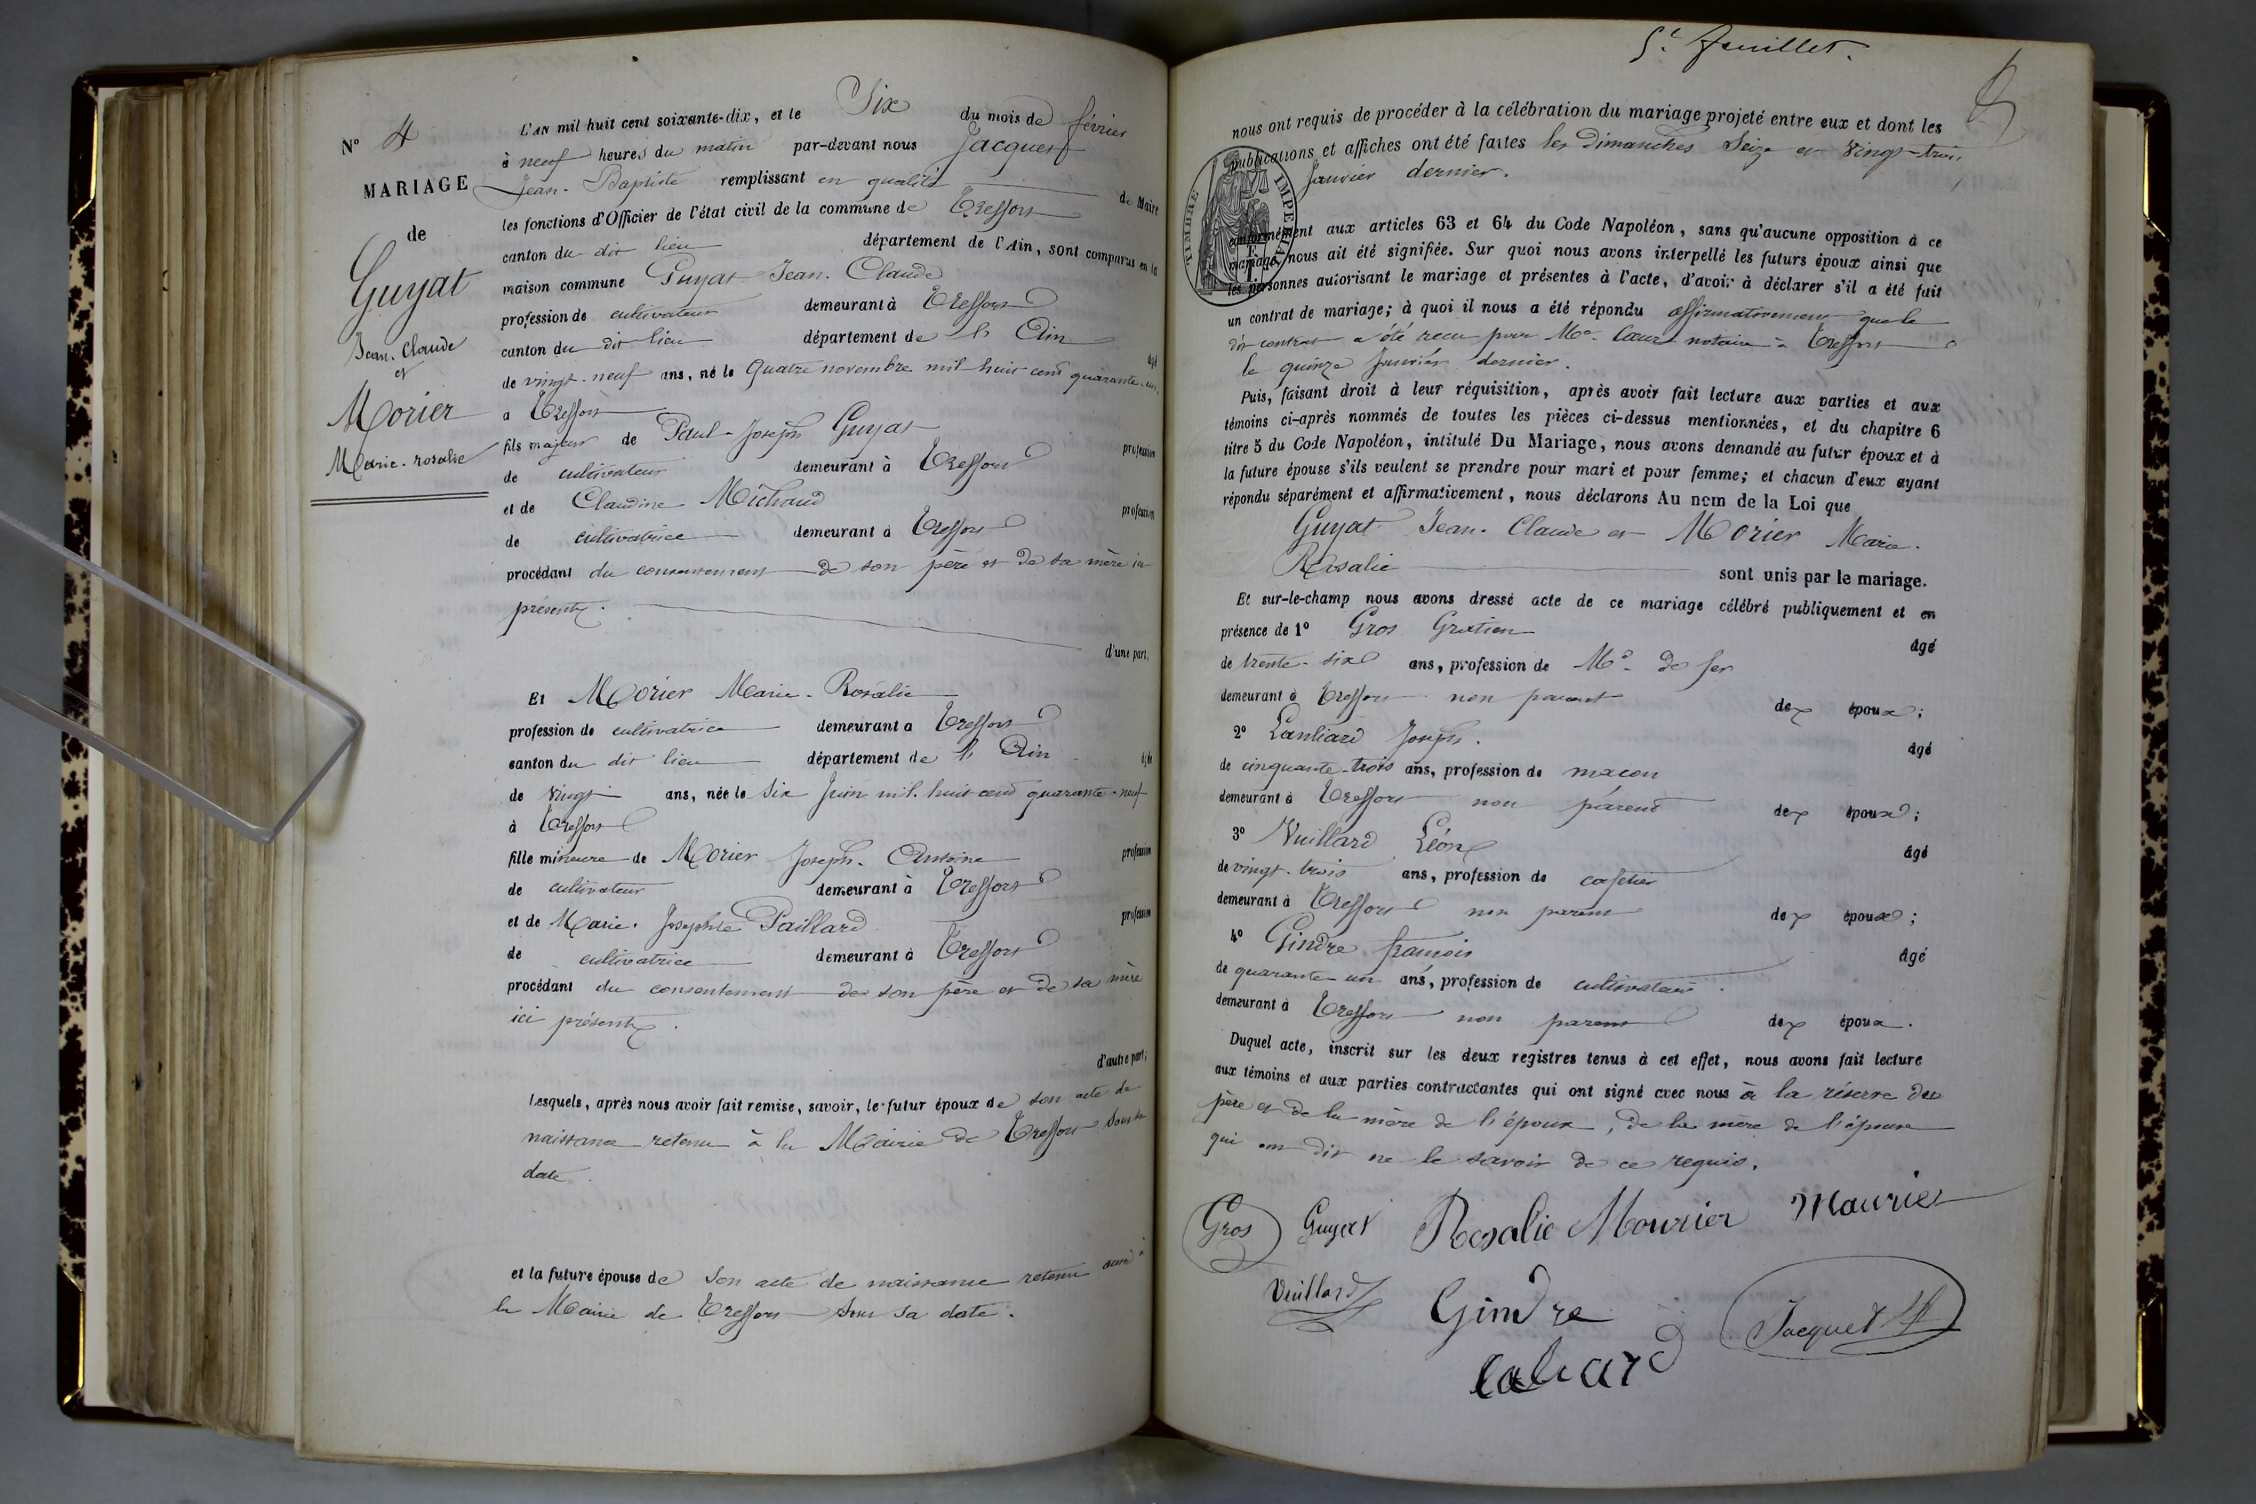 N° 4
MARIAGE
de
Guyat
Jean. Claude
et
Morier
Marie. rosalie
L'AN mil huit cent soixante-dix, et le Six du mois de février
à neuf heures du matin par-devant nous Jacquet
Jean-Baptiste remplissant en qualité de Maire
les fonctions d'Officier de l'état civil de la commune de Treffort
canton du dit lieu département de l'Ain, sont comparus en la
maison commune Guyat Jean. Claude
profession de cultivateur demeurant à Treffort
canton du dit lieu département de l'Ain âgé
de vingt-neuf ans, né le Quatre novembre mil huit cent quarante
a Treffort
fils majeur de Paul-Joseph Guyat profession
de cultivateur demeurant à Treffort
et de Claudine Michaud profession
de cultivatrice demeurant à Treffort
procédant du consentement de son père et de sa mère ici
présents.
d'une part,
Et Morier Marie-Rosalie
profession de cultivatrice demeurant a Treffort
canton du dit lieu département de l'Ain âgée
de vingt ans, née le Six Juin mil huit cent quarante-neuf
à Treffort
fille mineure de Morier Joseph-Antoine profession
de cultivateur demeurant à Treffort
et de Marie. Josephte Paillard profession
de cultivatrice demeurant à Treffort
procédant du consentement de son père et de sa mère
ici présents.
d'autre part;
Lesquels, après nous avoir fait remise, savoir, le futur époux de son acte de
naissance retenu à la Mairie de Treffort sous sa
date.
et la future épouse de son acte de naissance retenu aussi à
la Mairie de Treffort sous sa date.
5e feuillet.
nous ont requis de procéder à la célébration du mariage projeté entre eux et dont les
publications et affiches ont été faites les dimanches Seize et vingt-trois
Janvier dernier.
TIMBRE IMPERIAL
conformément aux articles 63 et 64 du Code Napoléon, sans qu'aucune opposition à ce
mariage, nous ait été signifiée. Sur quoi nous avons interpellé les futurs époux ainsi que
les personnes autorisant le mariage et présentes à l'acte, d'avoir à déclarer s'il a été fait
un contrat de mariage; à quoi il nous a été répondu affirmativement que le
dit contrat a été recu par Me notaire à Treffort
le quinze Janvier dernier.
Puis, faisant droit à leur réquisition, après avoir fait lecture aux parties et aux
témoins ci-après nommés de toutes les pièces ci-dessus mentionnées, et du chapitre 6
titre 5 du Code Napoléon, intitulé Du Mariage, nous avons demandé au futur époux et à
la future épouse s'ils veulent se prendre pour mari et pour femme; et chacun d'eux ayant
répondu séparément et affirmativement, nous déclarons Au nom de la Loi que
Guyat Jean. Claude et Morier Marie.
Rosalie sont unis par le mariage.
Et sur-le-champ nous avons dressé acte de ce mariage célébré publiquement et en
présence de 1° Gros Gratien âgé
de trente-six ans, profession de Md de fer
demeurant à Treffort non parent des époux;
2° Lanliard Joseph. âgé
de cinquante-trois ans, profession de macon
demeurant à Treffort non parent des époux;
3° Vuillard Léon âgé
de vingt-trois ans, profession de cafetier
demeurant à Treffort non parent des époux;
4° Gindre francois âgé
de quarante-un ans, profession de cultivateur.
demeurant à Treffort non parent des époux.
Duquel acte, inscrit sur les deux registres tenus à cet effet, nous avons fait lecture
aux témoins et aux parties contractantes qui ont signé avec nous à la réserve du
père et de la mère de l'époux, de la mère de l'épouse
qui ont dit ne le savoir de ce requis.
Gros Guyat Rosalie Mourier Maurier
Vuillard Gindre Jacquet